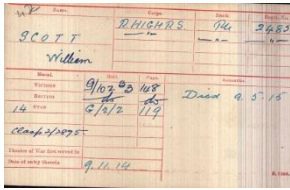 Name. Corps. Rank.
SCOTT R. HIGHRS. Pte 2483
William
Medal. Roll. Page. Remarks.
VICTORY 9/107 B3 148
BRITISH do do Died 9.5.15
14 STAR G/2/2 119
Clasp
Theatre of War first served in
Date of entry therein 9.11.14